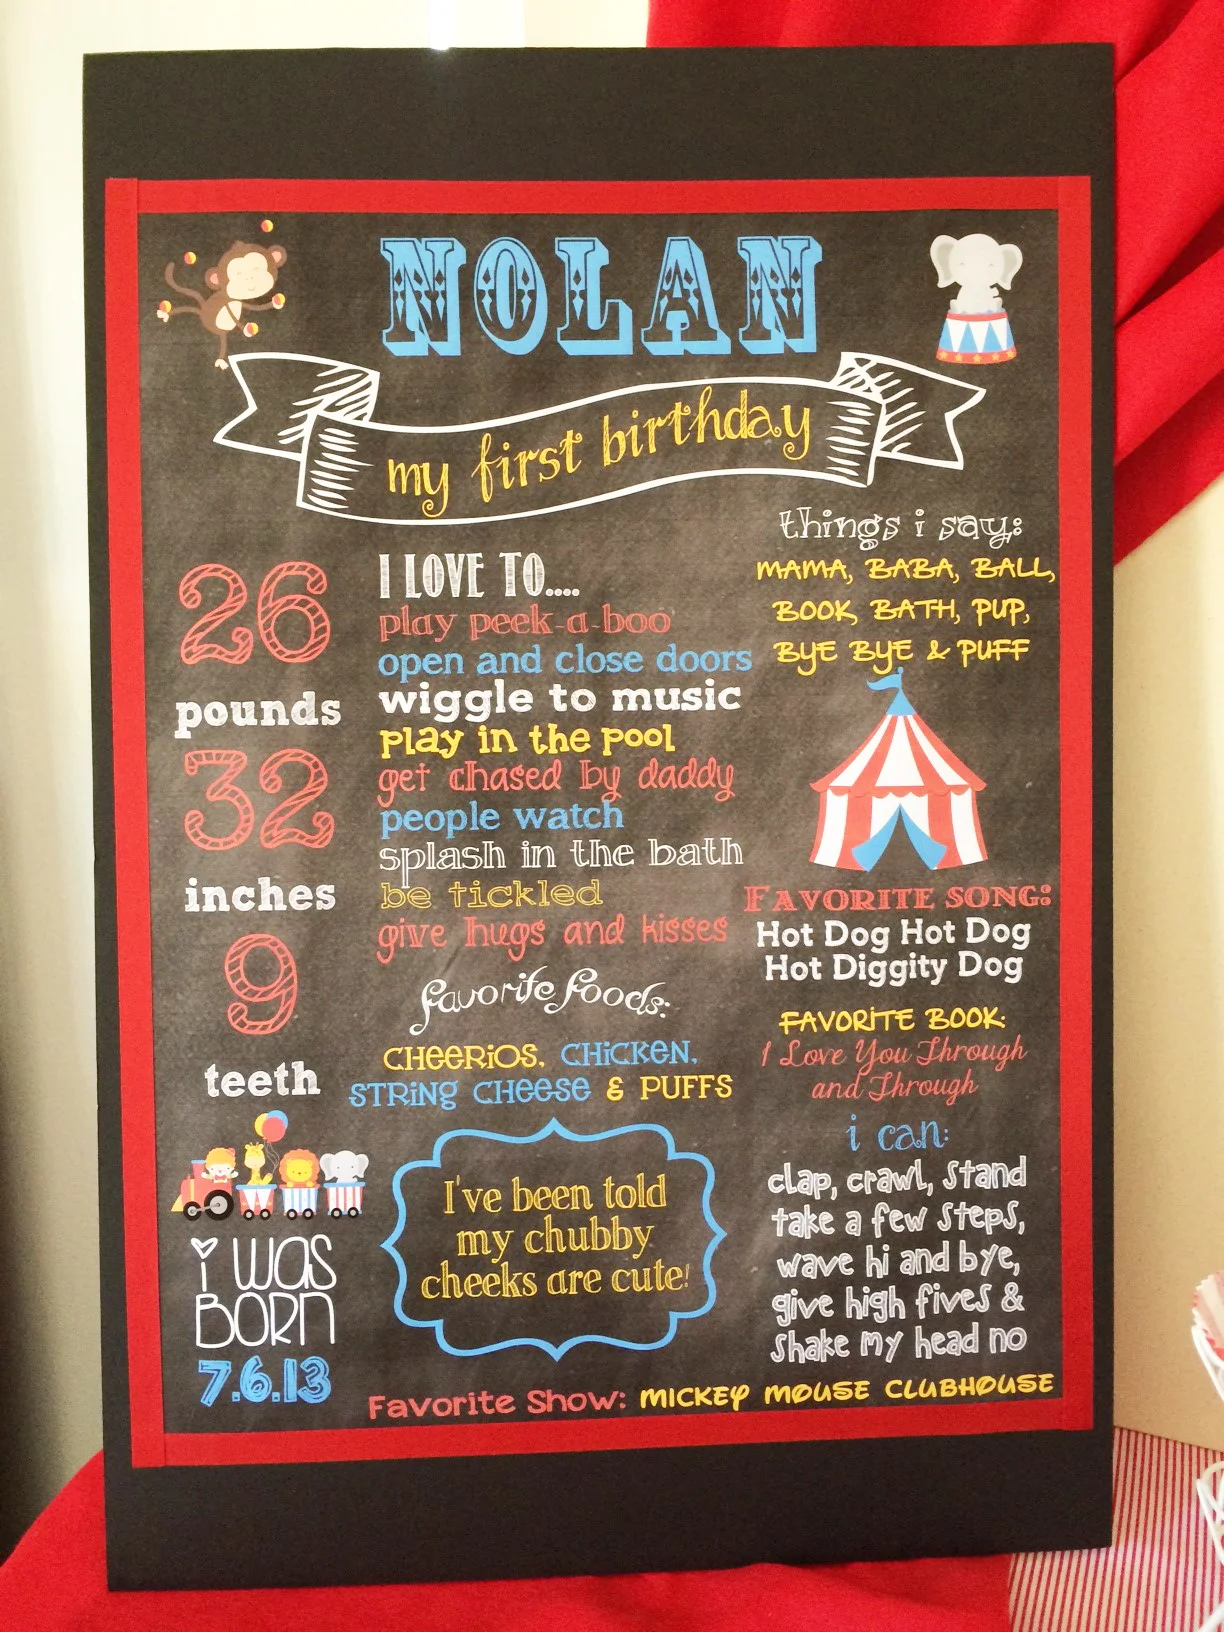 NOLAN
my first birthday
26
pounds
32
inches
9
teeth
i was
born
7.6.13
I LOVE TO....
play peek-a-boo
open and close doors
wiggle to music
play in the pool
get chased by daddy
people watch
splash in the bath
be tickled
give hugs and kisses
favorite foods:
CHEERIOS, CHICKEN,
STRING CHEESE & PUFFS
I've been told
my chubby
cheeks are cute!
things i say:
MAMA, BABA, BALL,
BOOK, BATH, PUP,
BYE BYE & PUFF
FAVORITE SONG:
Hot Dog Hot Dog
Hot Diggity Dog
FAVORITE BOOK:
I Love You Through
and Through
i can:
clap, crawl, stand
take a few steps,
wave hi and bye,
give high fives &
shake my head no
Favorite Show: MICKEY MOUSE CLUBHOUSE